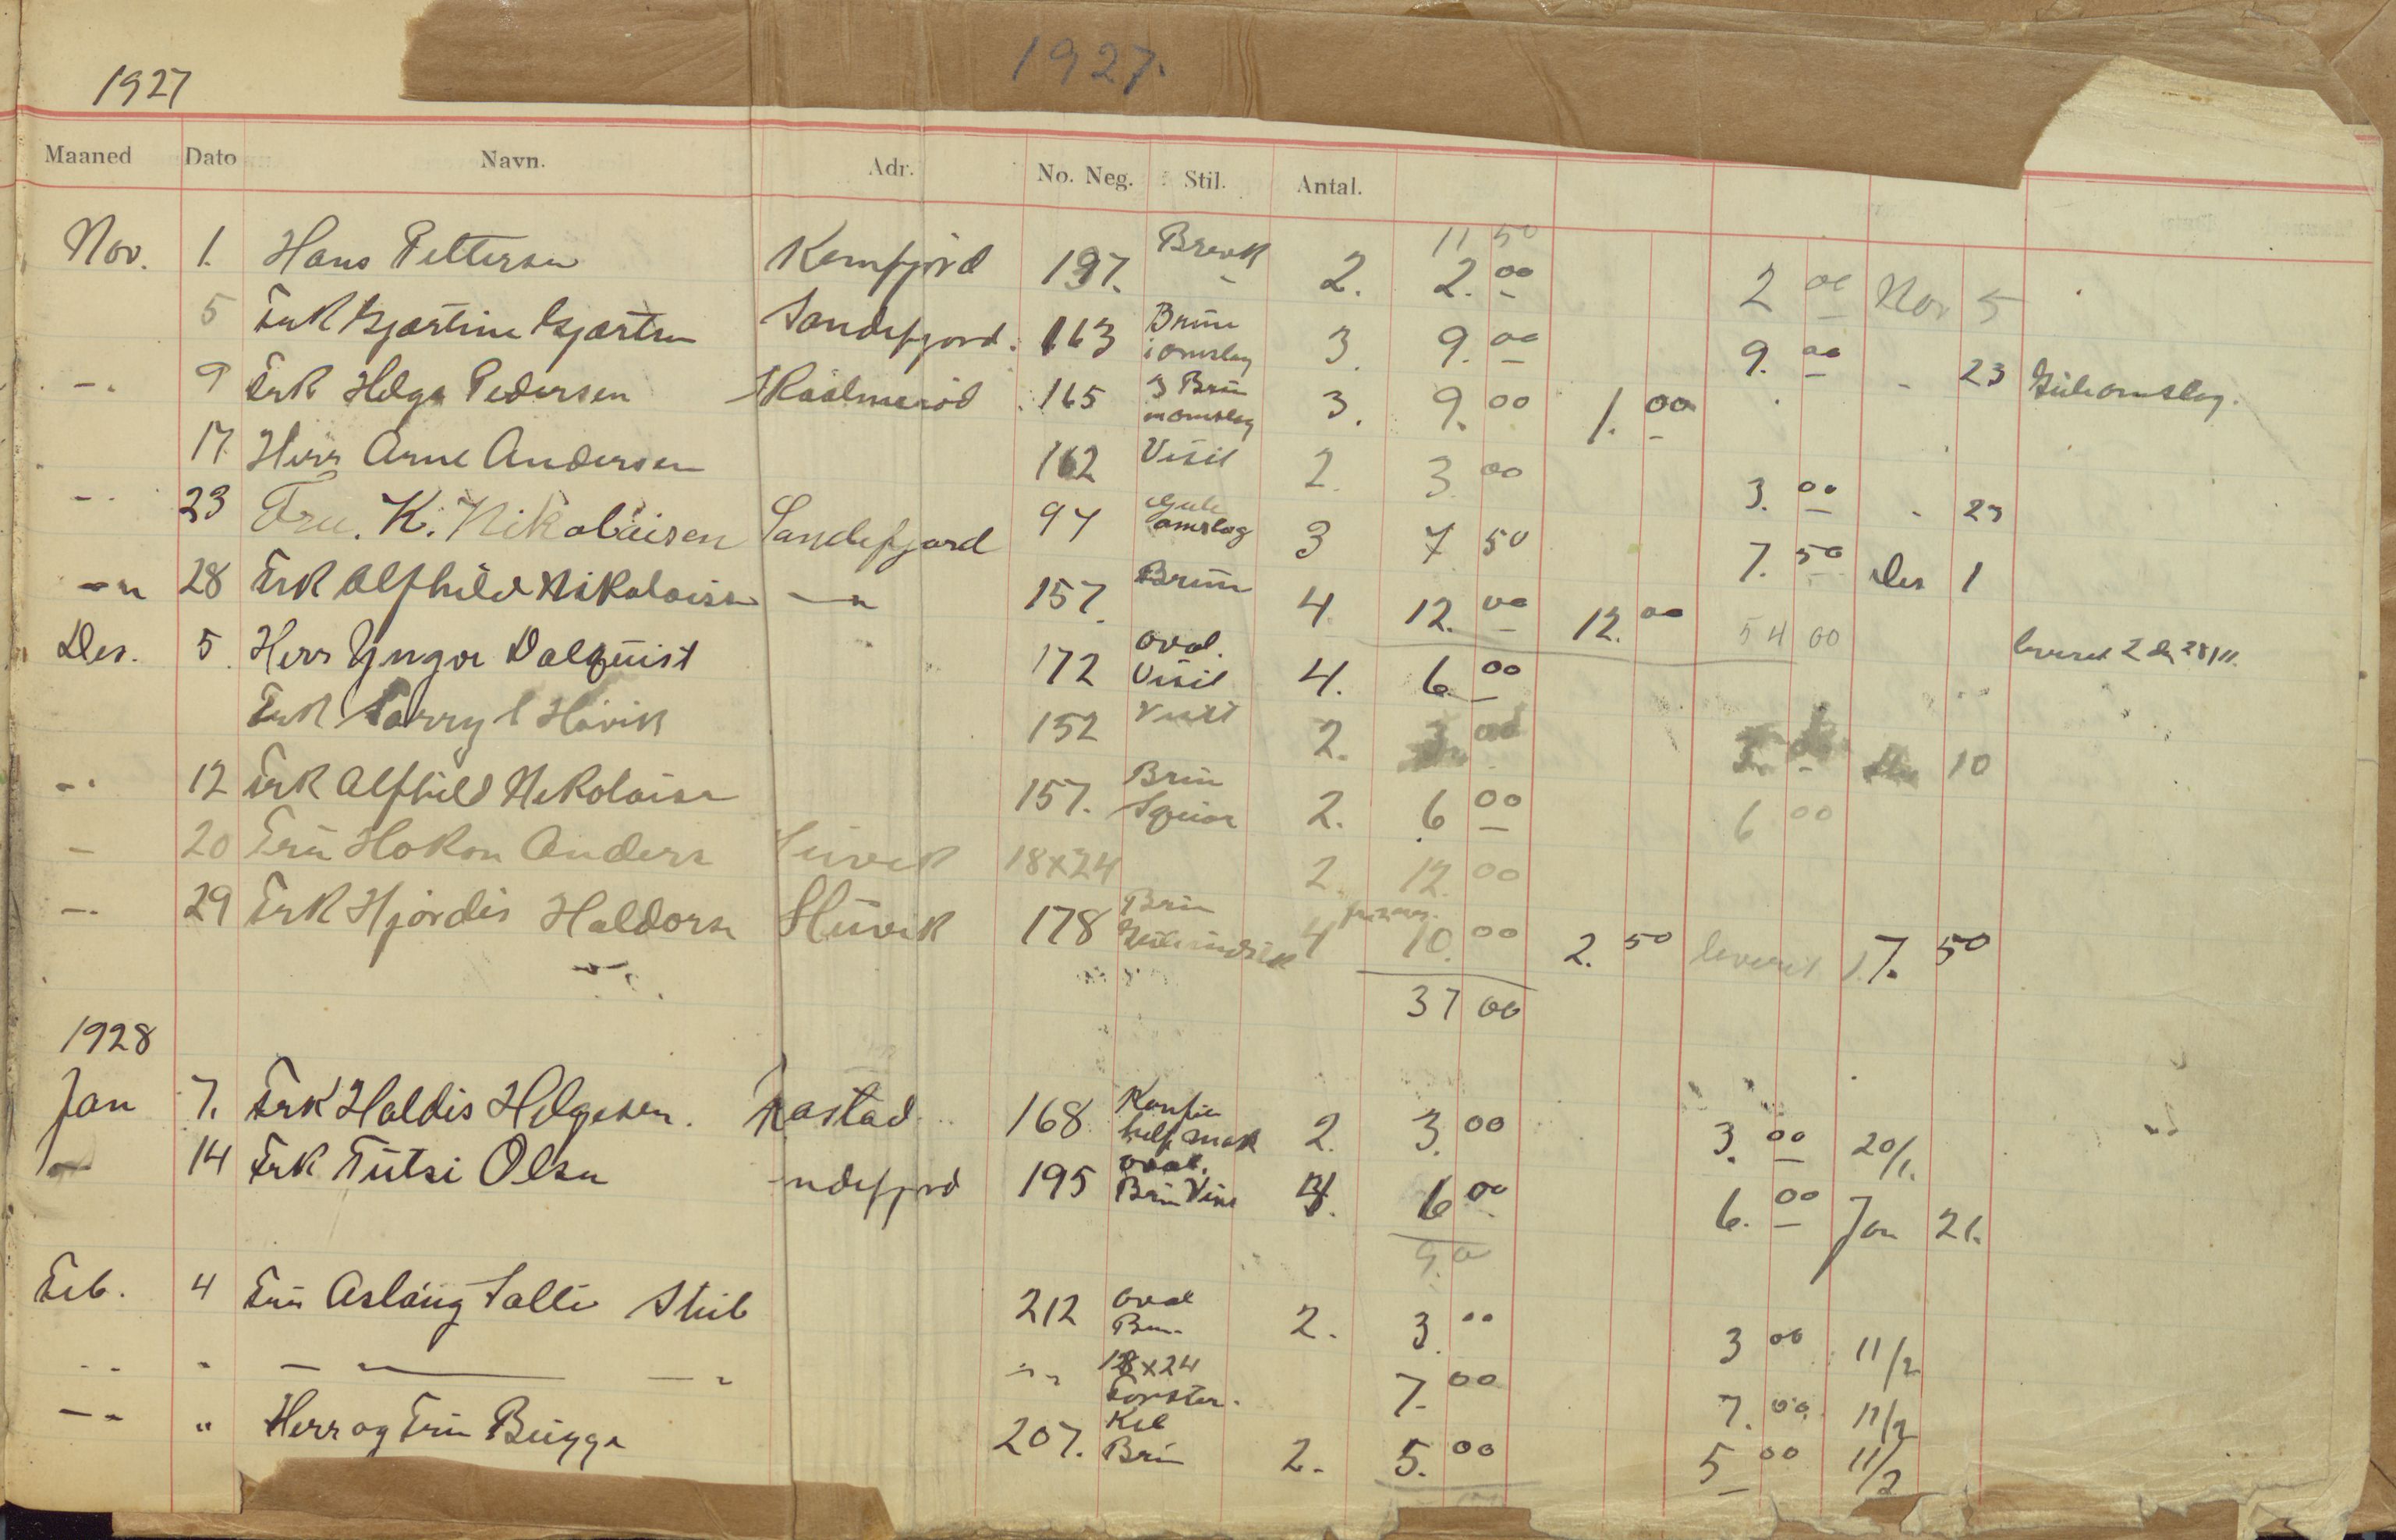 1927
1927.
Maaned Dato Navn. Adr. No. Neg. Stil. Antal.
11 50
Nov. 1. Hans Pettersen 197. Brevk 2. 2.00 2 00 Nov 5
5 Frk Sandefjord. 163 Brun i omslag 3. 9.00 9.00 - 23
-" 9 Frk Helga Pedersen 165 3 Brun omslag 3. 9.00 1.00
17. Herr Arne Andersen 162 Visit 2. 3.00 3.00 " 23
-" 23 Fru. K. Nikolaisen Sandefjord 97 Gule omslag 3 7 50 7.50 Des 1
-" 28 Frk Alfhild Nikolaisen -" 157. Brun 4 12.00 12.00 54 00 leveret 2 den 28/11.
Des. 5. Herr Yngve Dalquist 172 oval. Visit 4. 6.00
Frk Hövik 152 Visit 2. 3 00 3.00 10
-" 12 Frk Alfhild Nikolaisen 157. Brun 2. 6 00 6 00
- 20 Fru Hokon Anders 18x24 2. 12.00
-" 29 Frk Hjördis Haldors 178 Brun 4 10.00 2.50 leveret 7.50
37 00
1928
Jan 7. Frk Haldis Helgesen. 168 2. 3.00 3.00 20/1.
14 Frk Tutsi Olsen ndefjord 195 oval. Brun Visit 6 00 6.00 Jan 21.
9.00
Feb. 4 Fru Aslaug Stub 212 oval Brun 2. 3.00 3 00 11/2
-" " — " — " " 18x24 Forster. 7.00 7.00 11/2
-" " Herr og Fru Bugge 207. Kab Brun 2. 5.00 5 00 11/2